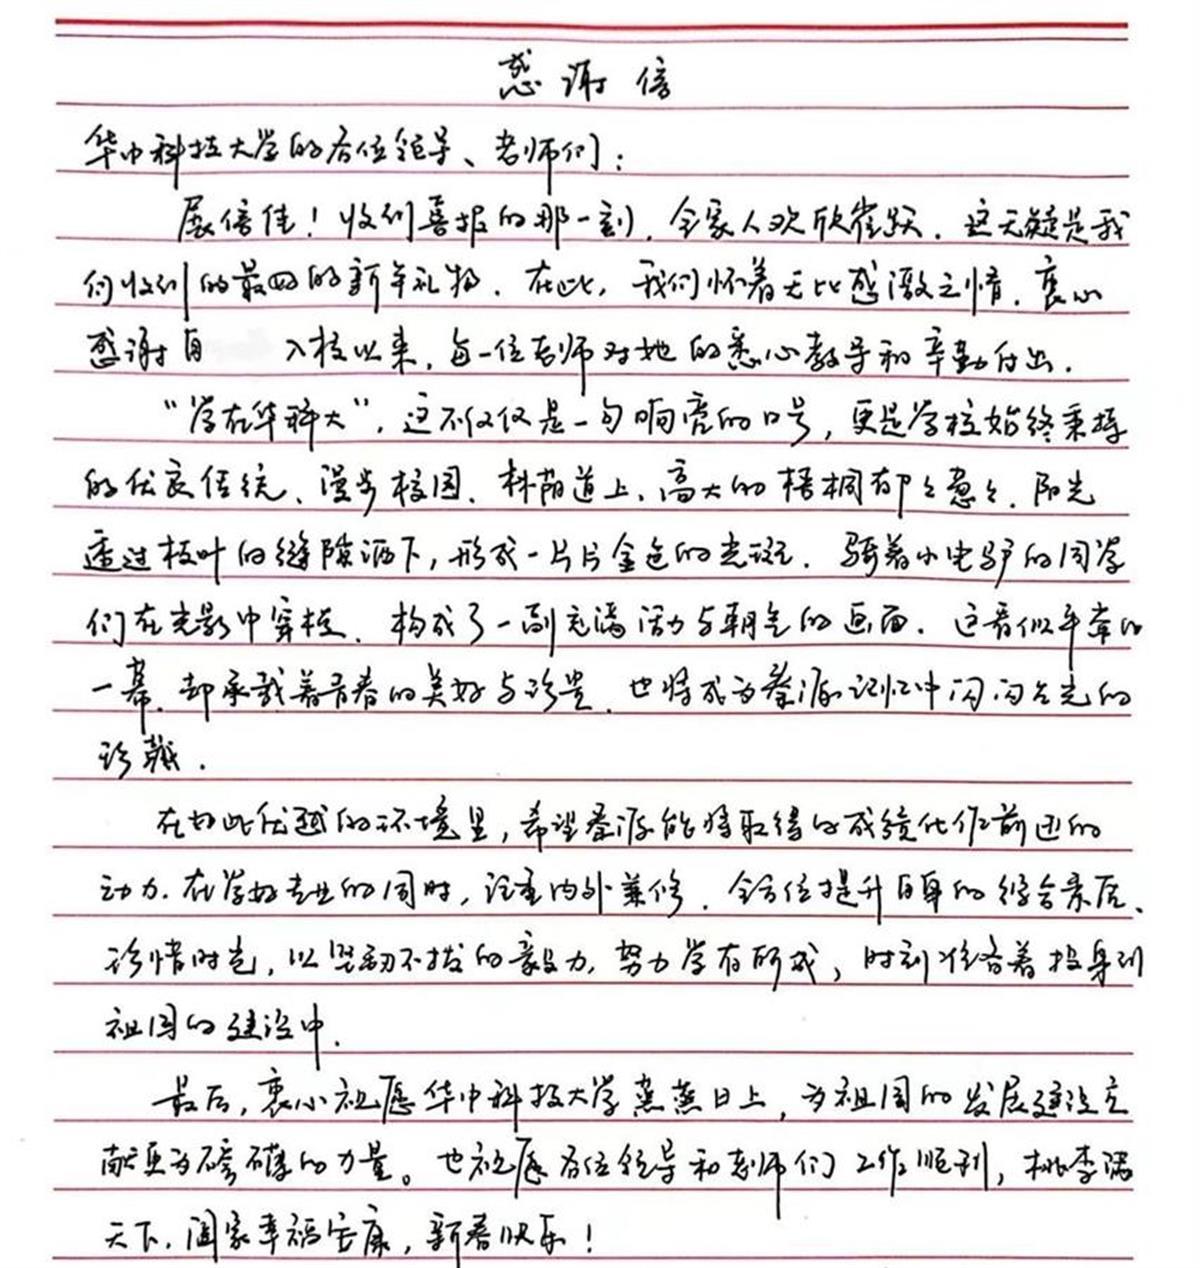 感谢信
华中科技大学的各位领导、老师们：
展信佳！收到喜报的那一刻，全家人欢欣雀跃，这无疑是我
们收到的最好的新年礼物。在此，我们怀着无比感激之情，衷心
感谢自 入校以来，每一位老师对她的悉心教导和辛勤付出.
“学在华科大”，这不仅仅是一句响亮的口号，更是学校始终秉持
的优良传统、漫步校园、林荫道上，高大的梧桐郁々葱々，阳光
透过枝叶的缝隙洒下，形成一片片金色的光斑. 骑着小电驴的同学
们在光影中穿梭，构成了一副充满活力与朝气的画面. 这看似平常的
一幕，却承载着青春的美好与珍贵，也将成为蓁源记忆中闪闪发光的
珍藏.
在如此优越的环境里，希望蓁源能将取得的成绩化作前进的
动力. 在学好专业的同时，注重内外兼修，全方位提升自身的综合素质、
珍惜时光，以坚韧不拔的毅力，努力学有所成，时刻准备着投身到
祖国的建设中.
最后，衷心祝愿华中科技大学蒸蒸日上，为祖国的发展建设贡
献更为磅礴的力量。也祝愿各位领导和老师们工作顺利，桃李满
天下，阖家幸福安康，新春快乐！